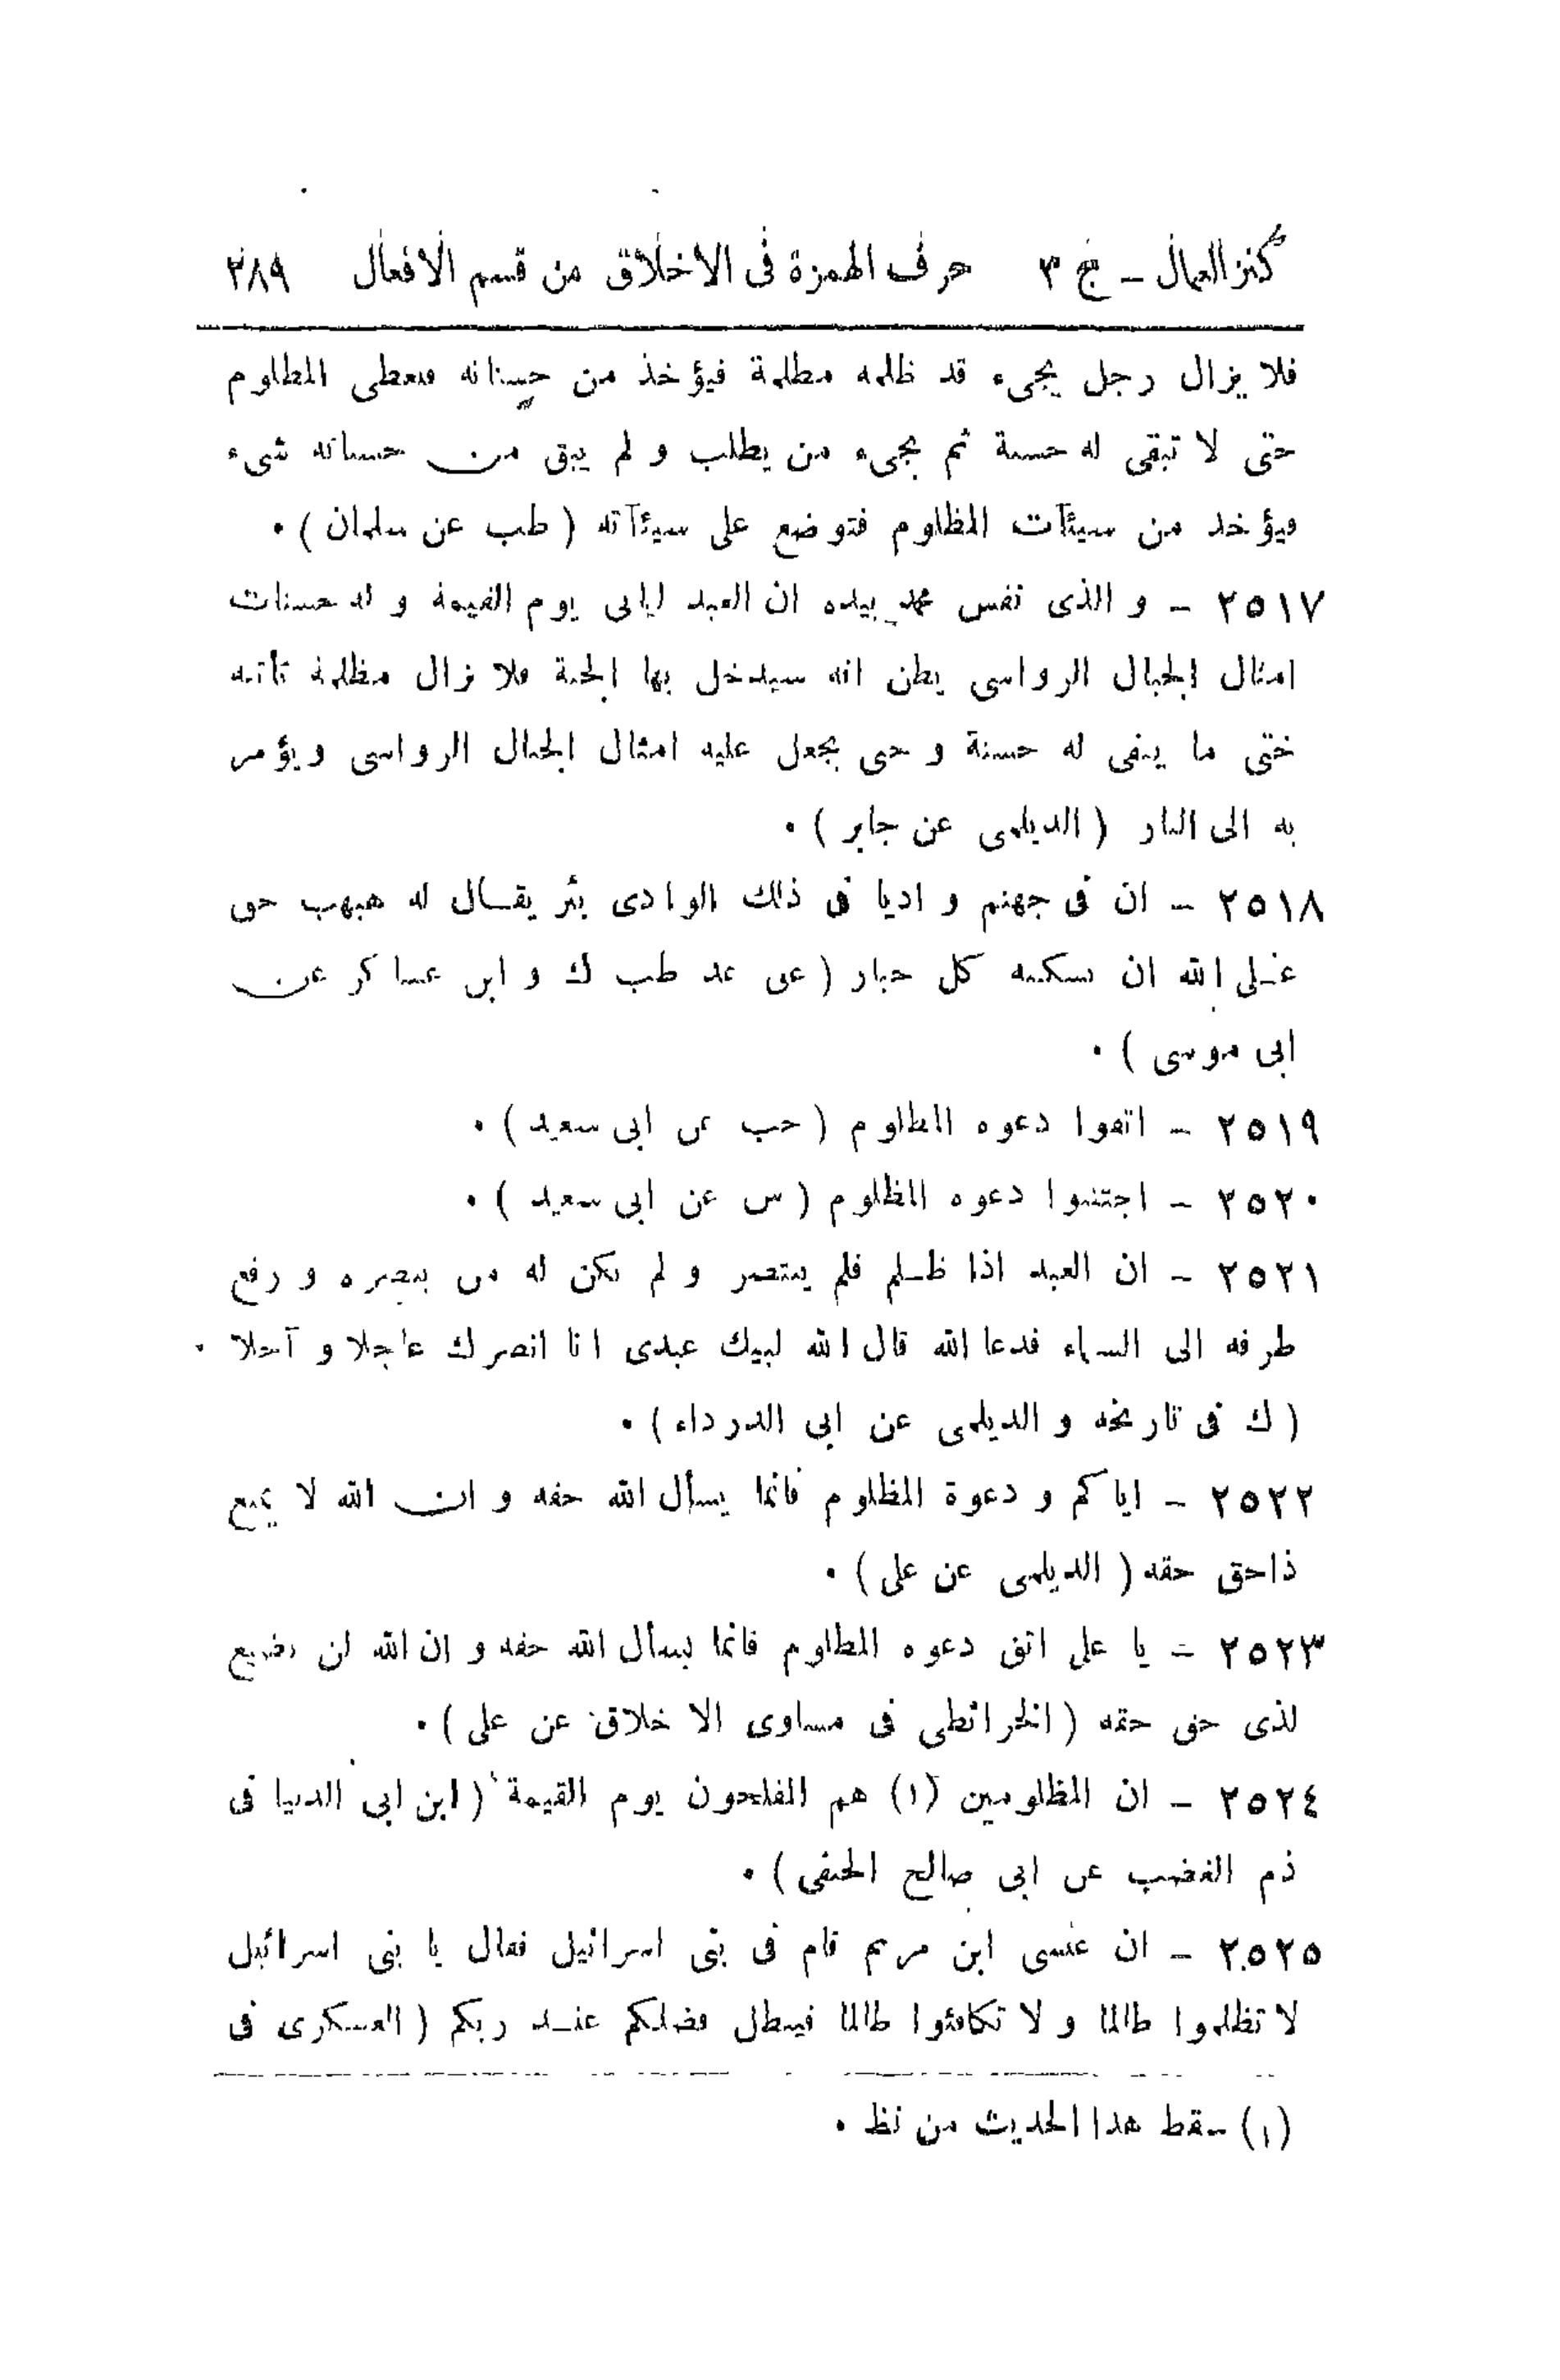 كنز العمال – ج ٣ حرف الهمزة فى الاخلاق من قسم الافعال ٢٨٩
فلا يزال رجل يجىء قد ظلمه مظلمة فيؤخذ من حسناته فيعطى المظلوم
حتى لا تبقى له حسنة ثم يجىء من يطلب و لم يبق من حسناته شىء
فيؤخذ من سيئآت المظلوم فتوضع على سيئآته ( طب عن سلمان ) ٠
٢٥١٧ – و الذى نفس محمد بيده ان العبد ليأتى يوم القيمة و له حسنات
امثال الجبال الرواسى يظن انه سيدخل بها الجنة فلا تزال مظلمة تأتيه
حتى ما يبقى له حسنة و حتى يجعل عليه امثال الجبال الرواسى ويؤمر
به الى النار ( الديلمى عن جابر ) ٠
٢٥١٨ – ان فى جهنم و اديا فى ذلك الوادى بئر يقال له هبهب حق
على الله ان يسكنه كل جبار ( عق عد طب ك و ابن عساكر عن
ابى موسى ) ٠
٢٥١٩ – اتقوا دعوه المظلوم ( حب عن ابى سعيد ) ٠
٢٥٢٠ – اجتنبوا دعوه المظلوم ( س عن ابى سعيد ) ٠
٢٥٢١ – ان العبد اذا ظلم فلم ينتصر و لم يكن له من ينصره و رفع
طرفه الى السماء فدعا الله قال الله لبيك عبدى انا انصرك عاجلا و آجلا ٠
( ك فى تاريخه و الديلمى عن ابى الدرداء ) ٠
٢٥٢٢ – اياكم و دعوة المظلوم فانما يسأل الله حقه و ان الله لا يمنع
ذاحق حقه ( الديلمى عن على ) ٠
٢٥٢٣ – يا على اتق دعوه المظلوم فانما يسأل الله حقه و ان الله لن يضيع
لذى حق حقه ( الخرائطى فى مساوى الاخلاق عن على ) ٠
٢٥٢٤ – ان المظلومين (١) هم المفلحون يوم القيمة ( ابن ابى الدنيا فى
ذم الغضب عن ابى صالح الحنفى ) ٠
٢٥٢٥ – ان عيسى ابن مريم قام فى بنى اسرائيل فقال يا بنى اسرائيل
لا تظلموا ظالما و لا تكافئوا ظالما فيبطل فضلكم عند ربكم ( العسكرى فى
(١) سقط هذا الحديث من نظ ٠